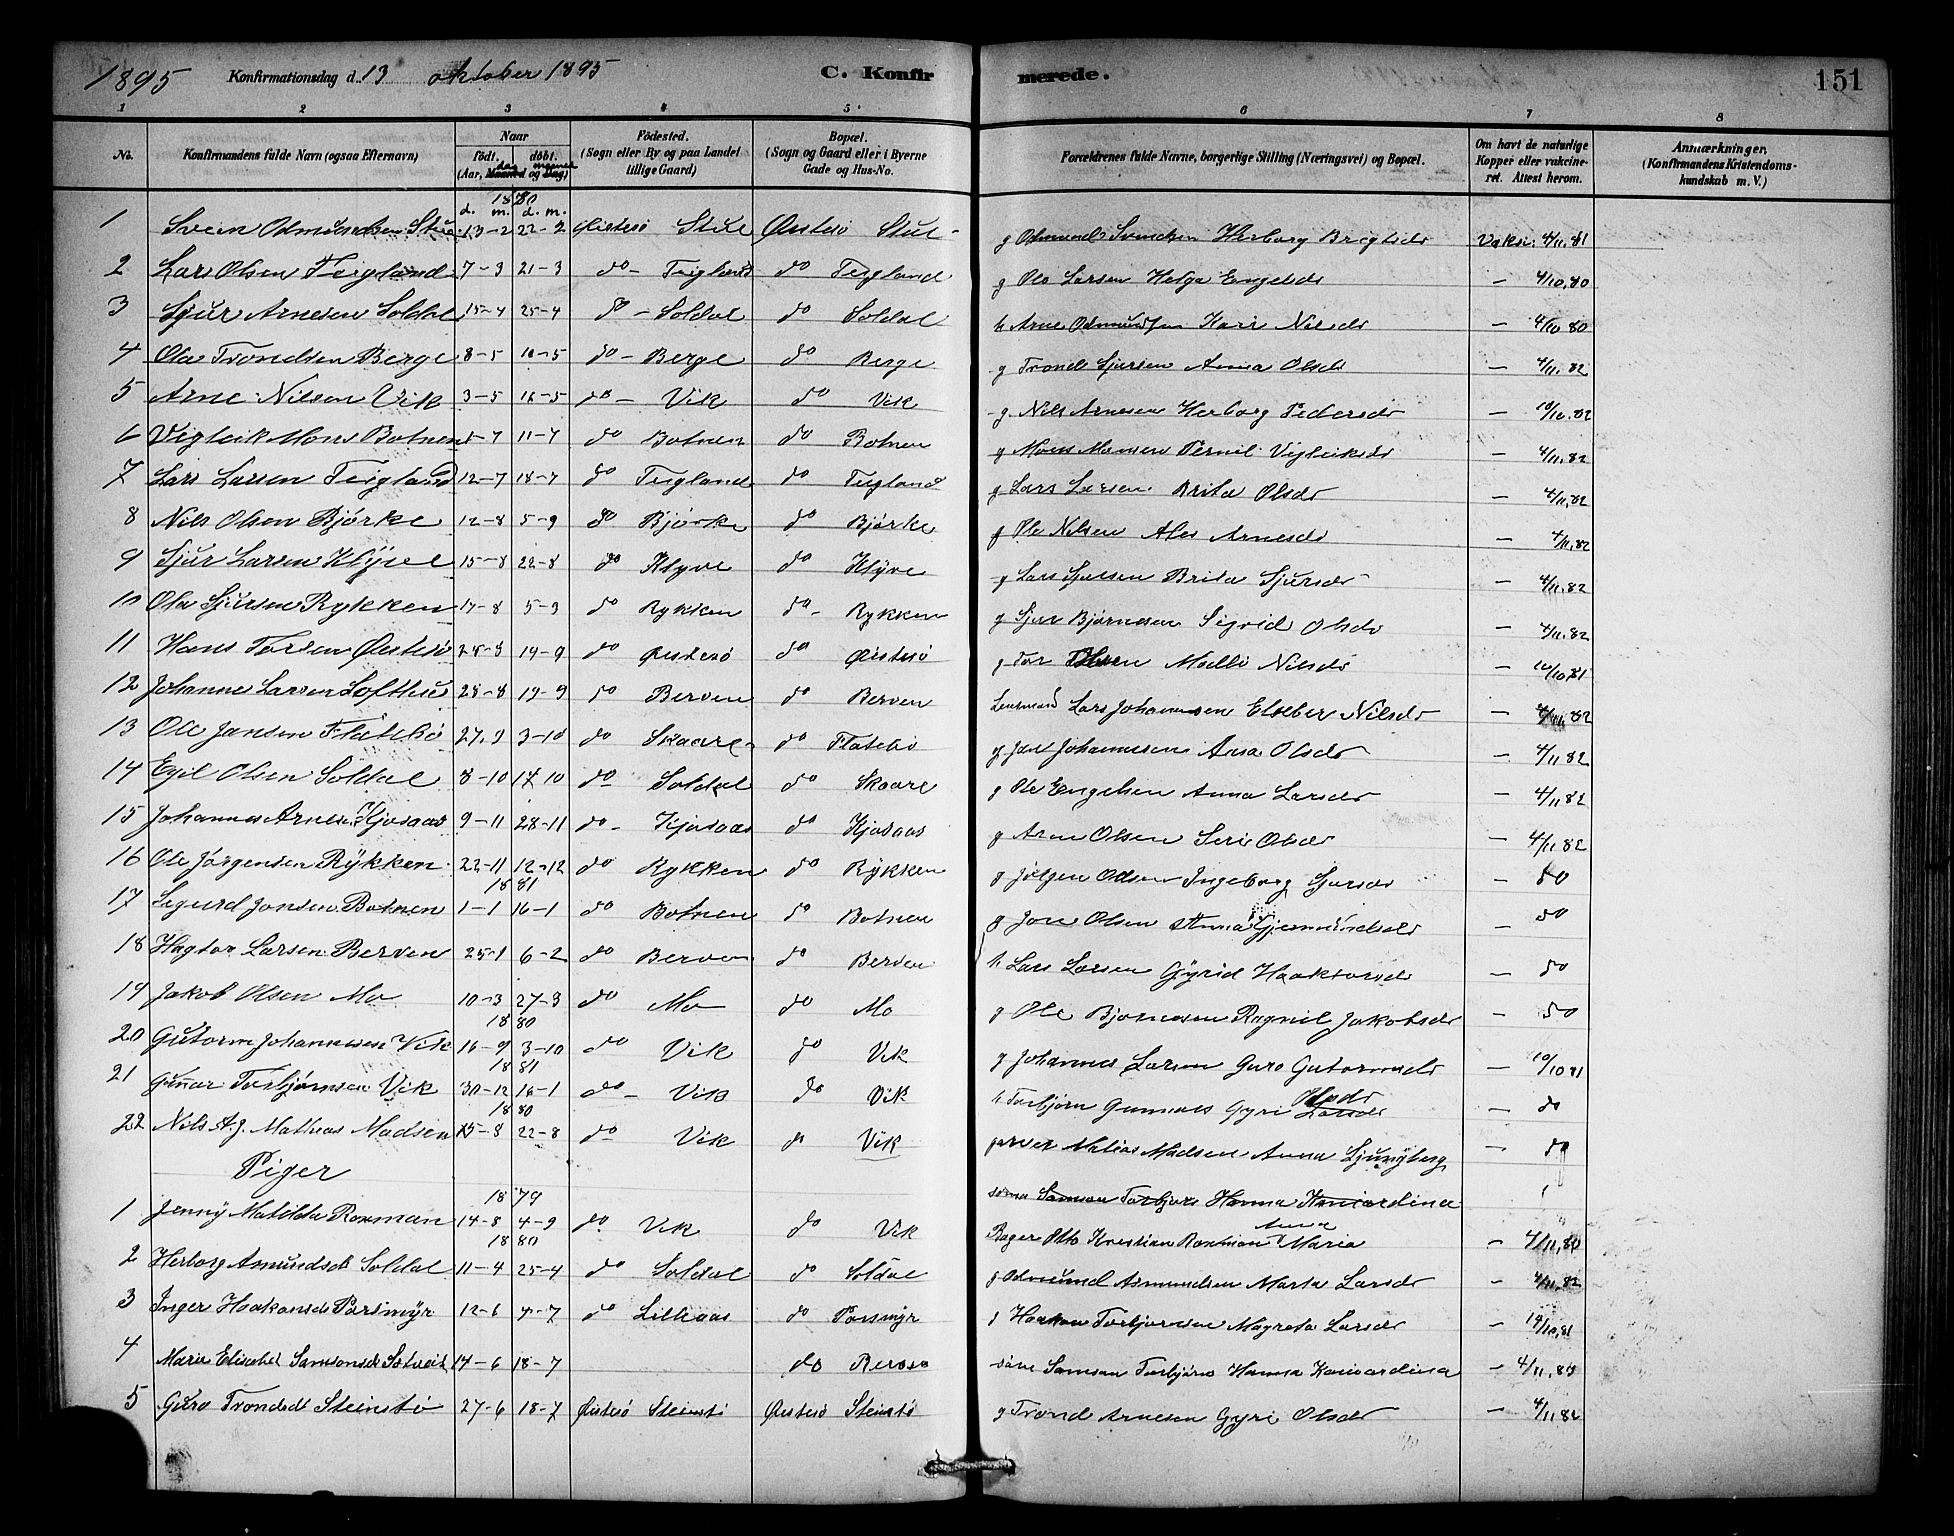 1895 Konfirmationsdag d. 13 oktober 1895 C. Konfirmerede. 151
1 2 3 4 5 6 7 8
No. Konfirmandens fulde Navn (ogsaa Efternavn) Naar født. døbt. (Aar, dag og maaned) Fødested. (Sogn eller By og paa Landet tillige Gaard) Bopæl. (Sogn og Gaard eller i Byerne Gade og Hus-No. Forældrenes fulde Navne, borgerlige Stilling (Næringsvei) og Bopæl. Om havt de naturlige Kopper eller vakcineret. Attest herom. Anmærkninger. (Konfirmandens Kristendomskundskab m. V.)
1880
d. m. d. m.
1 Svein Odmundsen 13-2 22-2 Østesø Stue Østesø Stue g Odmund Svendsen Herborg Brigtsdr Vaks. 4/11.81
2 Lars Olsen Teigland 7-3 21-3 do - Teigland do Teigland g Ole Larsen Helga Engelsdr - 4/10.80
3 Sjur Arnesen Soldal 15-4 25-4 do - Soldal do Soldal h Arne Odmundsen Kari Nilsdr - 4/10 80
4 Ola Trondsen Berge 8-5 16-5 do - Berge do Berge g Trond Sjursen Anna Olsdr - 4/11.82
5 Arne Nilsen Vik 3-5 16-5 do - Vik do Vik g Nils Arnesen Herborg Pedersdr - 10/10.82
6 Vigleik Mons Botnen 11-7 do Botnen do Botnen g Mons Monsen Pernil Vigleiksdr - 4/11.82
7 Lars Larsen Teigland 12-7 18-7 do Teigland do Teigland g Lars Larsen Brita Olsdr - 4/11.82
8 Nils Olsen Bjørke 12-8 5-9 do Bjørke do Bjørke g Ole Nilsen Ales Arnesdr - 4/11.82
9 Sjur Larsen Klyve 15-8 22-8 do Klyve do Klyve g Lars Sjursen Brita Sjursdr - 4/11.82
10 Ola Sjursen Rykken 17-8 5-9 do Rykken do - Rykken g Sjur Bjørnesen Sigrid Olsdr - 4/11.82
11 Hans Torsen Østesø 19-9 do Østesø do Østesø g Tor Madli Nilsdr - 10/10.81
12 Johannes Larsen Softhus 28-8 19-9 do Berven do Berven Lensmand Lars Johannessen Elseber Nilsdr - 4/11.82
13 Ole Jansen Flatebø 27.9 3-10 do Skaare do Flatebø g Jan Johannessen Ana Olsdr - 4/11 82
14 Egil Olsen Soldal 8-10 17 10 do Soldal do Skaare g Ole Engelsen Anna Larsdr - 4/11 82
15 Johannes Arnesen Kjosaas 9-11 28-11 do - Kjosaas do Kjosaas g Arne Olsen Siri Olsdr - 4/11 82
16 Ole Jørgensen Rykken 22-11 12-12 do Rykken do Rykken g Jørgen Odsen Ingeborg Sjursdr - do
1881
17 Sigurd Jonsen Botnen 1-1 16-1 do Botnen do Botnen g Jon Olsen Anna Gjermundsdr - do
18 Hagtor Larsen Berven 25-1 6-2 do Berven do Berven h Lars Larsen Gyrid Haaktorsdr - do
19 Jakob Olsen Mo 10-3 27-3 do Mo do Mo g Ole Bjørnesen Ragnil Jakobsdr - do
1880
20 Gutorm Johannessen Vik 16-9 3-10 do Vik do Vik g Johannes Larsen Guro Gutormsdr - 10/10 81
1881
21 Gunar Torbjørnsen Vik 30-12 16-1 do - Vik do Vik h Torbjørn Gunnars Gyri Larsdr Olsdr - do
1880
22 Nils A.J. Mathias Madsen 15-8 22-8 do Vik do Vik Matias Madsen Anna Ljungberg - do
Piger
1879
Samson Torbjørs Hanna Konardina
1 Jenny Matilda Roxman 14-8 4-9 do Vik do Vik Bager Otto Kristian Roxman Anna Maria - 4/11.80
1880
2 Herborg Asmundsdr Soldal 11-4 25-4 do Soldal do Soldal g Odmund Asmundsen Marta Larsdr - 4/11.82
3 Inger Haakonsdr Porsmyr 12-6 4-7 do Lilleaas do Porsmyr g Haakon Torbjørnsen Magreta Larsdr - 10/10.81
4 Marie Elisabet Samsonsdr 14-6 18-7 do Samson Torbjørns Hanna Konardina - 4/11.80
5 Guro Trondsdr Steinstø 27-6 18-7 Østesø Steinstø Østesø Steinstø g Trond Arnesen Gyri Olsdr - 4/11 82